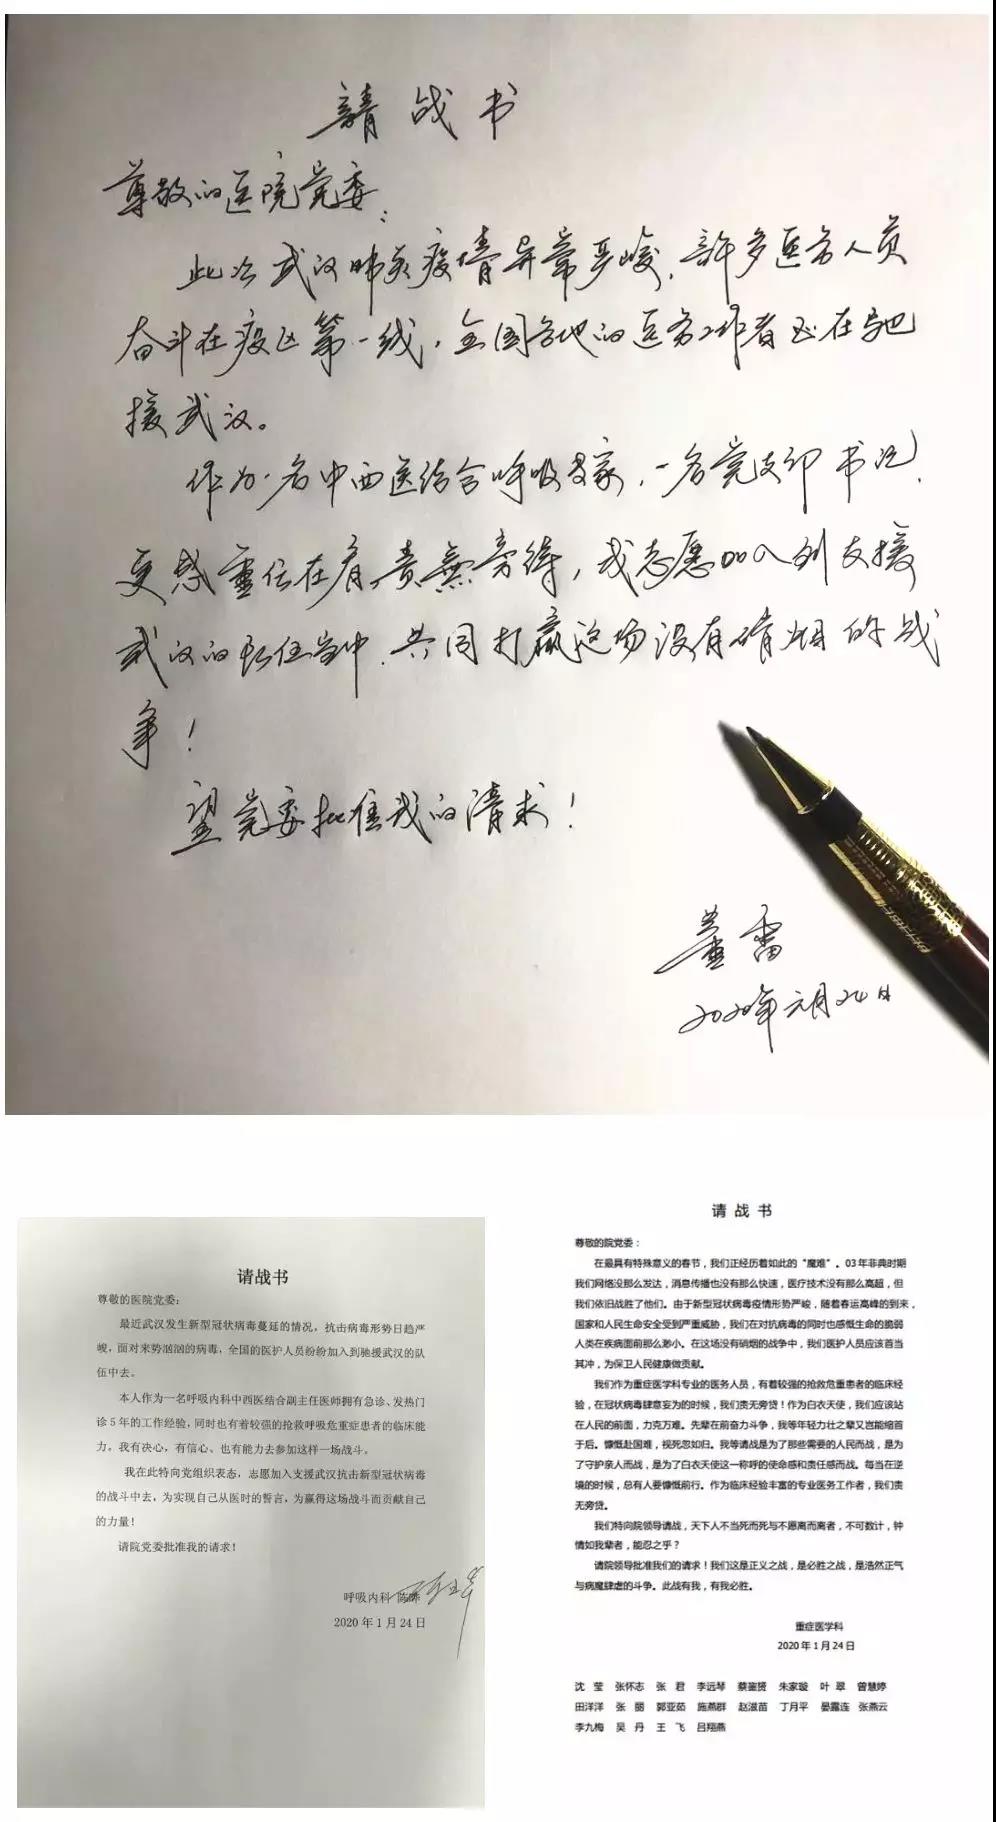 請战书
尊敬的医院党委：
此次武汉肺炎疫情异常严峻，許多医务人员
奋斗在疫区第一线，全国各地的医务工作者正在驰
援武汉。
作为一名中西医结合呼吸专家，一名党支部书记，
更感重任在肩，责無旁待，我志愿加入到支援
武汉的责任当中，共同打赢这场没有硝烟的战
争！
望党委批准我的请求！
董雷
2020年元月24日
请战书
尊敬的医院党委：
最近武汉发生新型冠状病毒蔓延的情况，抗击病毒形势日趋严
峻，面对来势汹汹的病毒，全国的医护人员纷纷加入到驰援武汉的队
伍中去。
本人作为一名呼吸内科中西医结合副主任医师拥有急诊、发热门
诊5年的工作经验，同时也有着较强的抢救呼吸危重症患者的临床能
力。我有决心，有信心、也有能力去参加这样一场战斗。
我在此特向党组织表态，志愿加入支援武汉抗击新型冠状病毒
的战斗中去，为实现自己从医时的誓言，为赢得这场战斗而贡献自己
的力量！
请院党委批准我的请求！
呼吸内科 陈晔
2020年1月24日
请战书
尊敬的院党委：
在最具有特殊意义的春节，我们正经历着如此的“魔难”。03年非典时期
我们网络没那么发达，消息传播也没有那么快速，医疗技术没有那么高超，但
我们依旧战胜了他们。由于新型冠状病毒疫情形势严峻，随着春运高峰的到来，
国家和人民生命安全受到严重威胁，我们在对抗病毒的同时也感慨生命的脆弱
人类在疾病面前那么渺小。在这场没有硝烟的战争中，我们医护人员应该首当
其冲，为保卫人民健康做贡献。
我们作为重症医学科专业的医务人员，有着较强的抢救危重患者的临床经
验，在冠状病毒肆意妄为的时候，我们责无旁贷！作为白衣天使，我们应该站
在人民的前面，力克万难。先辈在前奋力斗争，我等年轻力壮之辈又岂能缩首
于后。慷慨赴国难，视死忽如归。我等请战是为了那些需要的人民而战，是为
了守护亲人而战，是为了白衣天使这一称呼的使命感和责任感而战。每当在逆
境的时候，总有人要慷慨前行。作为临床经验丰富的专业医务工作者，我们责
无旁贷。
我们特向院领导请战，天下人不当死而死与不愿离而离者，不可数计，钟
情如我辈者，能忍之乎？
请院领导批准我们的请求！我们这是正义之战，是必胜之战，是浩然正气
与病魔肆虐的斗争。此战有我，有我必胜。
重症医学科
2020年1月24日
沈 莹 张怀志 张 君 李远琴 蔡鉴赟 朱家璇 叶 翠 曾慧婷
田洋洋 张 丽 郭亚茹 施燕群 赵滋苗 丁月平 晏露连 张燕云
李九梅 吴 丹 王 飞 吕翔燕